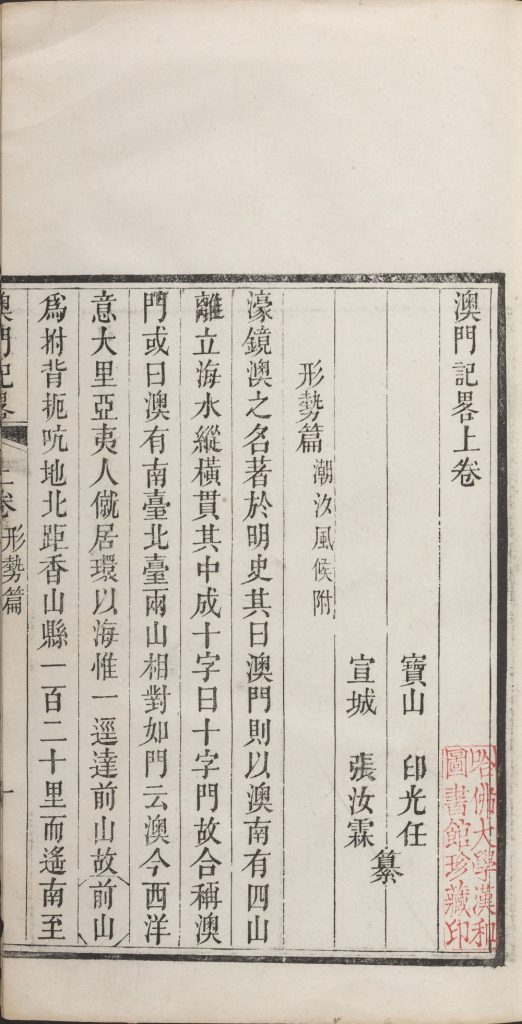 澳門記畧上卷
寶山 印光任
宣城 張汝霖 纂
形勢篇 潮汐風候附
濠鏡澳之名著於明史其曰澳門則以澳南有四山
離立海水縱橫貫其中成十字曰十字門故合稱澳
門或曰澳有南臺北臺兩山相對如門云澳今西洋
意大里亞夷人僦居環以海惟一逕達前山故前山
爲拊背扼吭地北距香山縣一百二十里而遙南至
澳門記畧 上卷 形勢篇
哈佛大學漢和
圖書館珍藏印